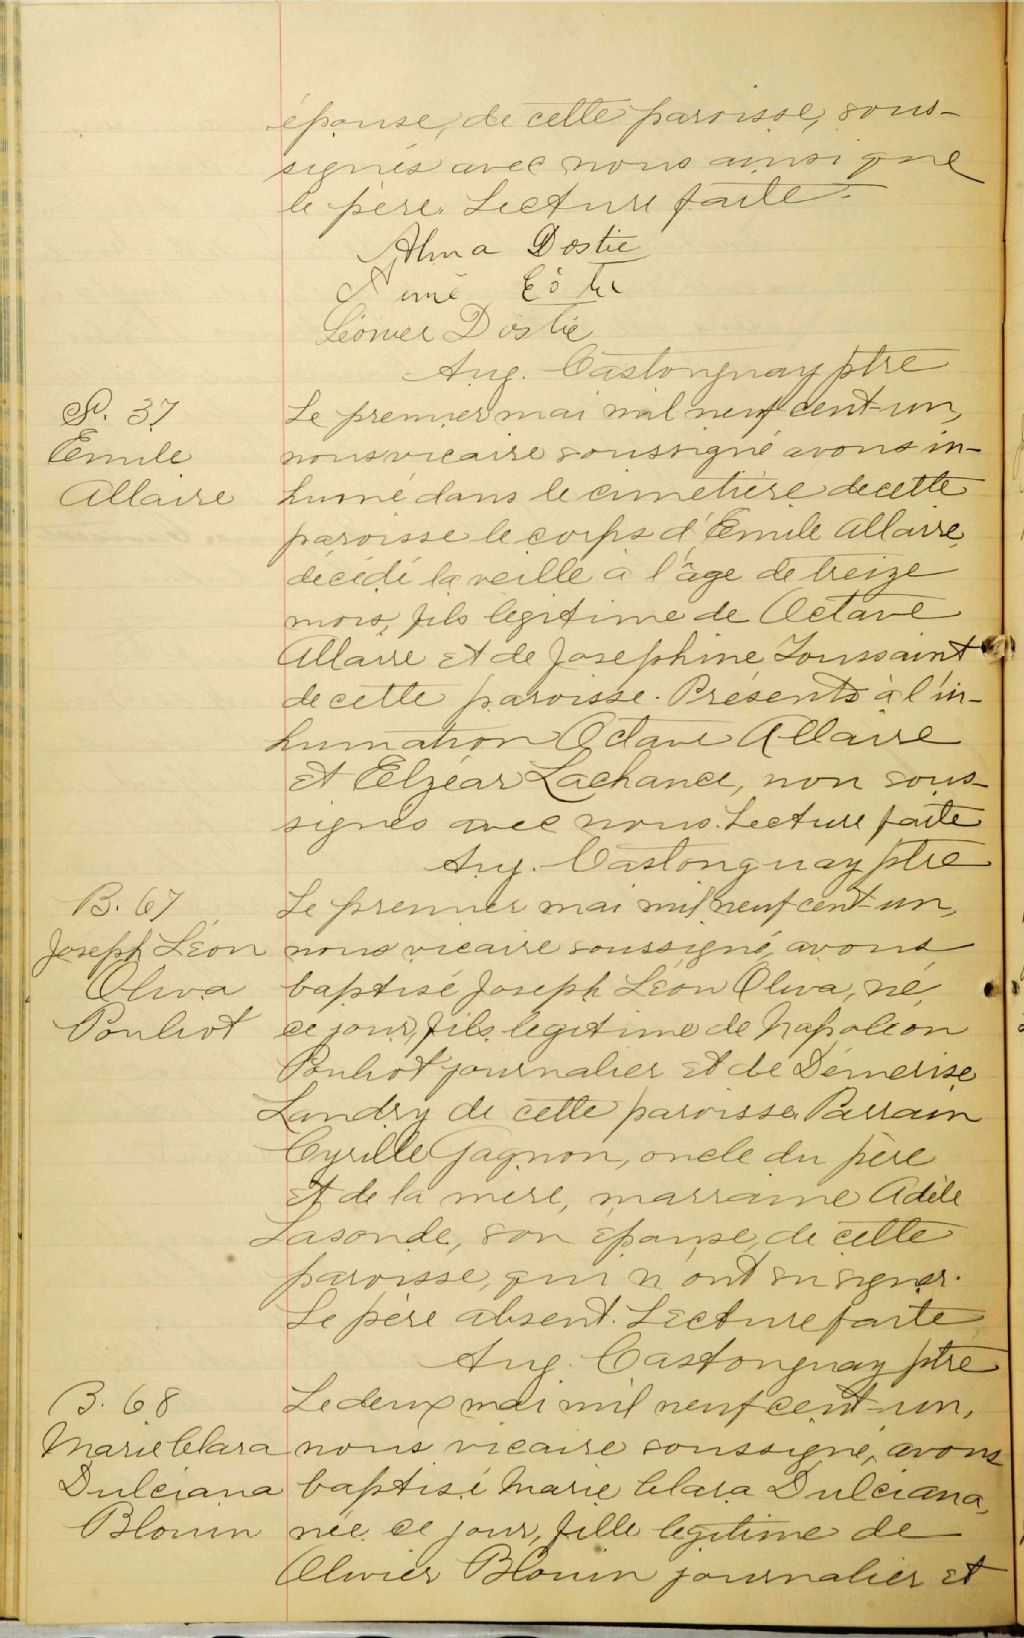 épouse, de cette paroisse, sous-
signés avec nous ainsi que
le père. Lecture faite.
Alma Dostie
Aimé Côté
Léonce Dostie
Aug. Castonguay ptre
S. 37
Emile
Allaire
Le premier mai mil neuf cent-un,
nous vicaire soussigné avons in-
humé dans le cimetière de cette
paroisse le corps d'Emile Allaire,
décédé la veille à l'âge de treize
mois, fils légitime de Octave
Allaire et de Josephine Toussaint
de cette paroisse. Présents à l'in-
humation Octave Allaire
et Elzéar Lachance, non sous-
signés avec nous. Lecture faite
Aug. Castonguay ptre
B. 67
Joseph Léon
Oliva
Pouliot
Le premier mai mil neuf cent-un,
nous vicaire soussigné, avons
baptisé Joseph Léon Oliva, né
ce jour, fils légitime de Napoléon
Pouliot journalier et de Démerise
Landry de cette paroisse. Parrain
Cyrille Gagnon, oncle du père
et de la mère, marraine Adèle
Lasonde, son épouse, de cette
paroisse, qui n'ont su signer.
Le père absent. Lecture faite
Aug. Castonguay ptre
B. 68
Marie Clara
Dulciana
Blouin
Le deux mai mil neuf cent-un,
nous vicaire soussigné, avons
baptisé Marie Clara Dulciana,
née ce jour, fille légitime de
Olivier Blouin journalier et